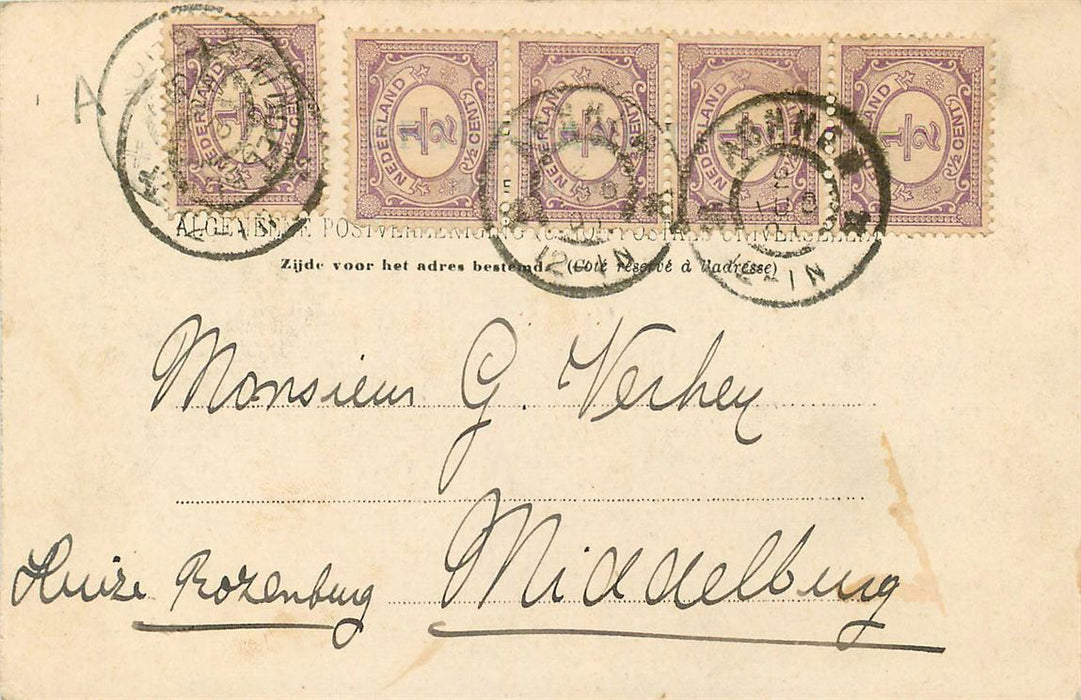 A
NEDERLAND ½ (½ CENT)
NEDERLAND ½ (½ CENT)
NEDERLAND ½ (½ CENT)
NEDERLAND ½ (½ CENT)
NEDERLAND ½ (½ CENT)
ARNHEM
12-1N
ALGEMEENE POSTVEREENIGING (UNION POSTALE UNIVERSELLE)
Zijde voor het adres bestemd. (Côté réservé à l'adresse)
Monsieur G. Verhey
Middelburg
Huize Rozenburg